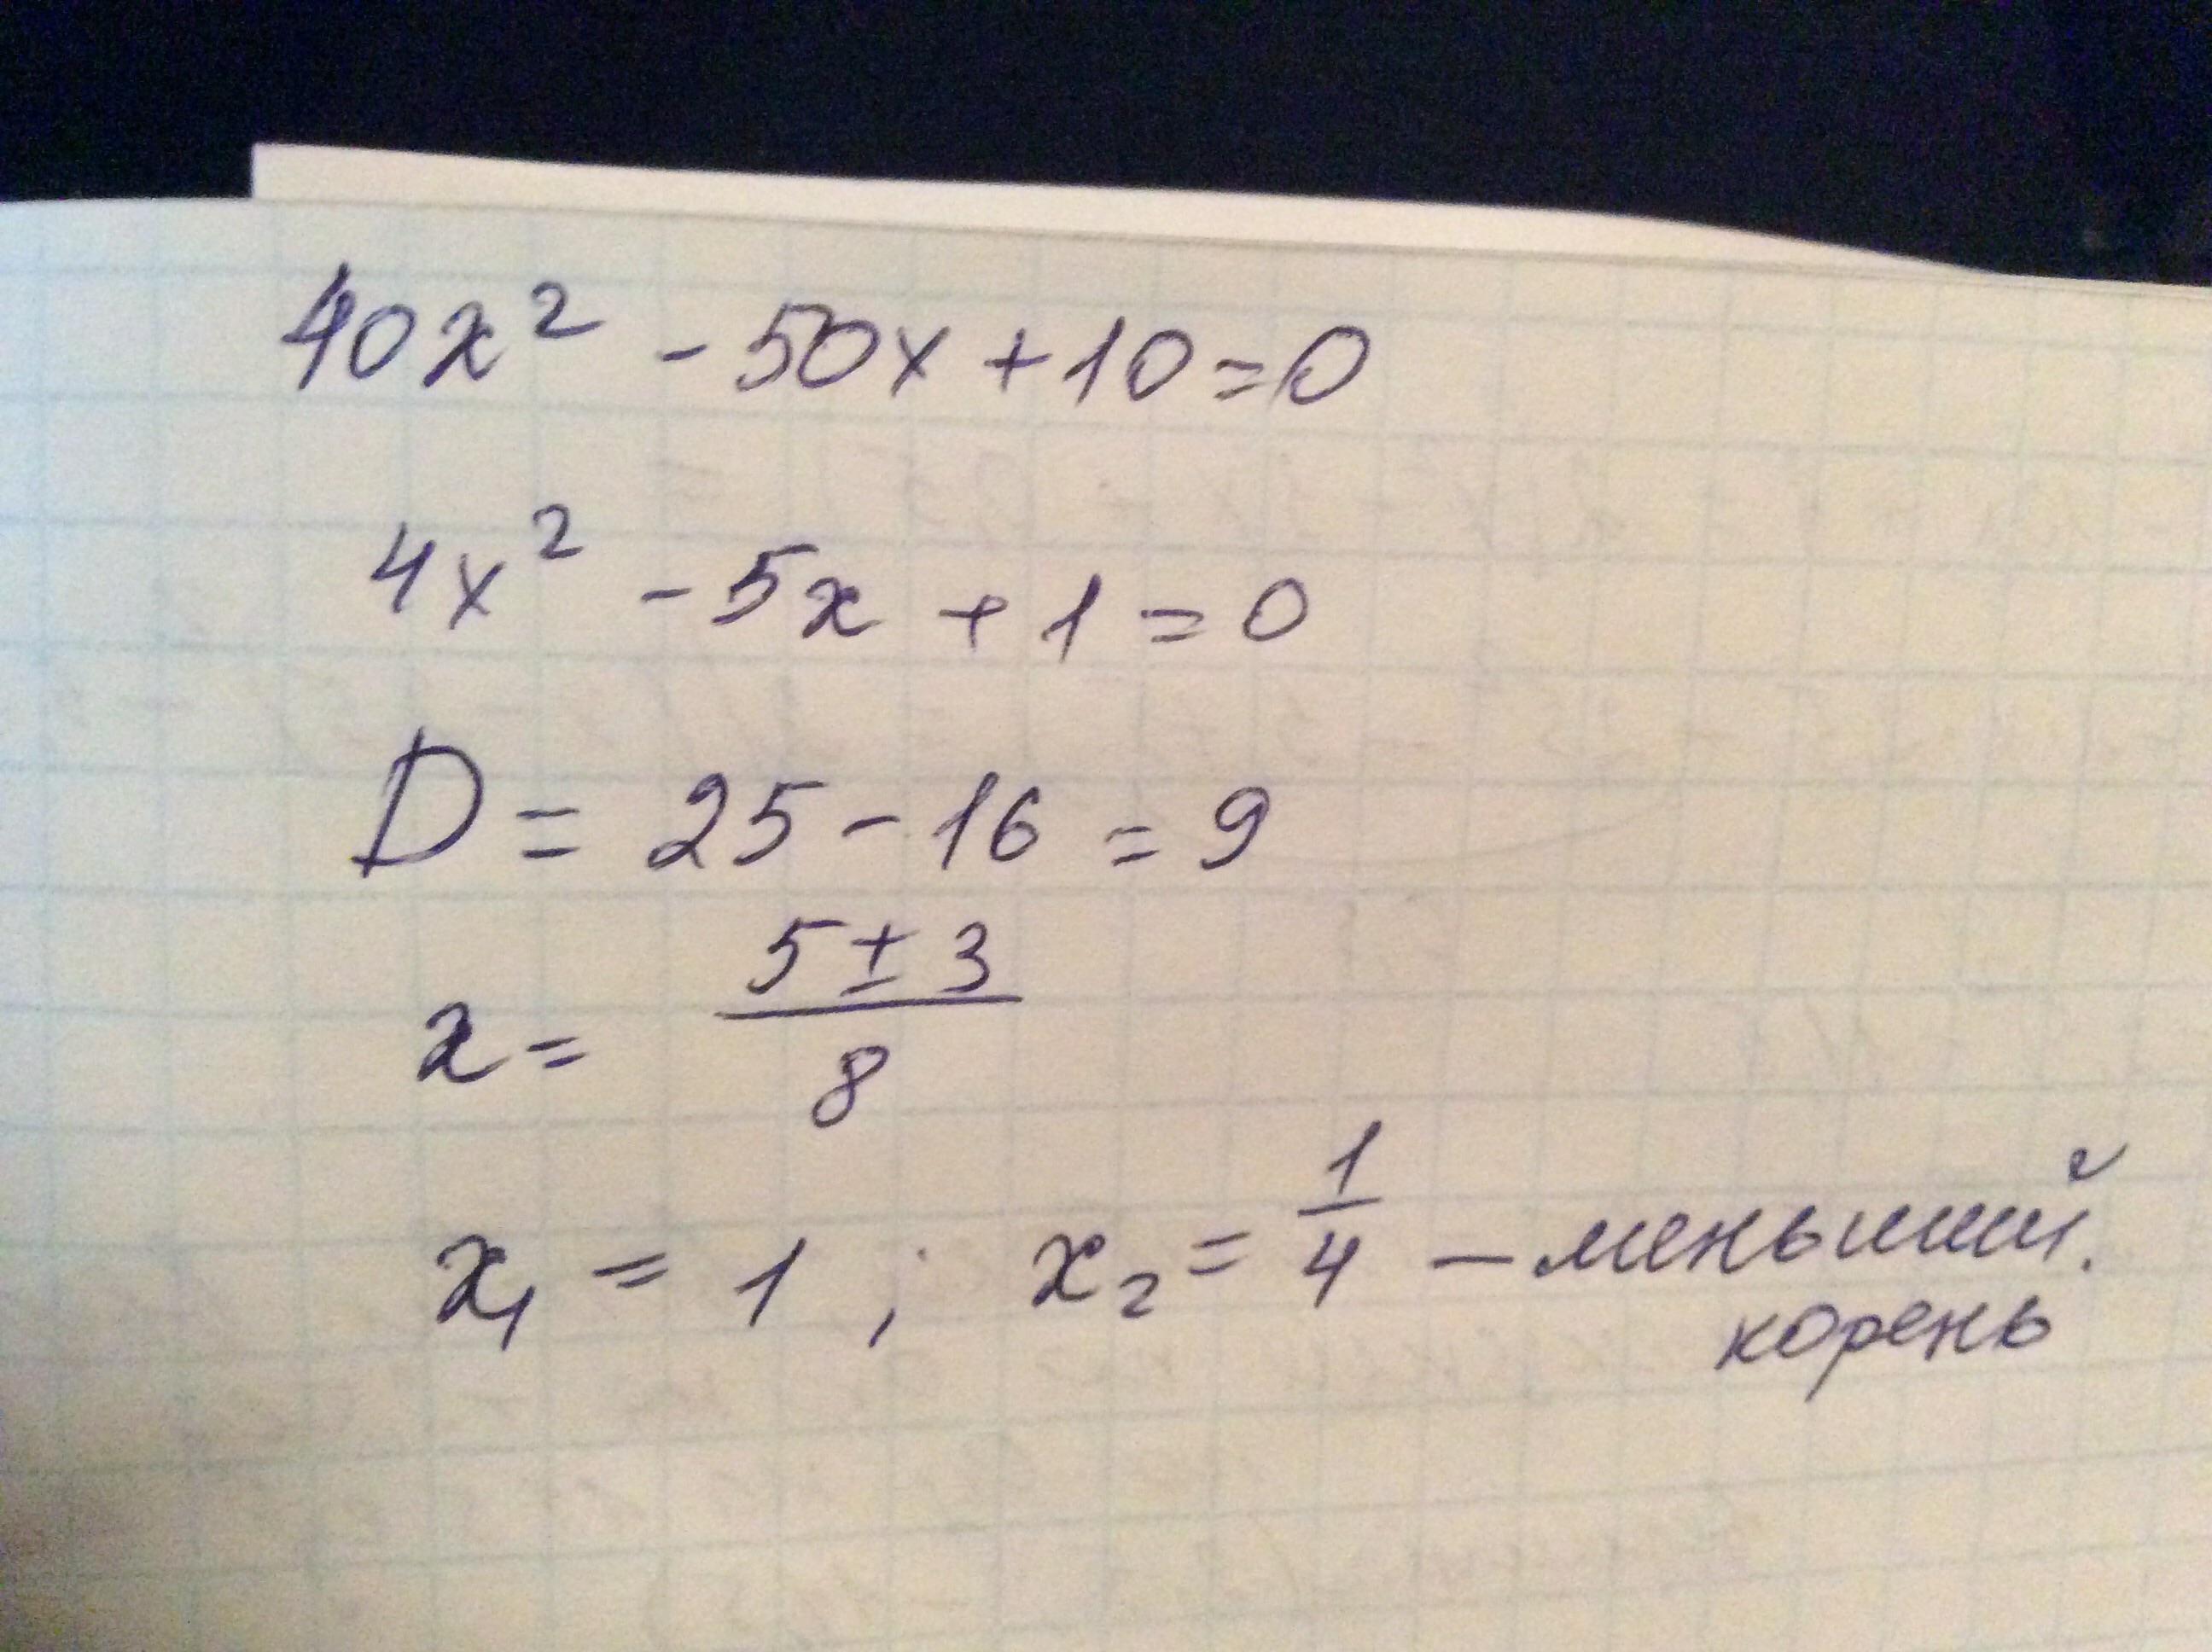 40x² - 50x + 10 = 0
4x² - 5x + 1 = 0
D = 25 - 16 = 9
x = (5 ± 3) / 8
x₁ = 1 ; x₂ = 1/4 — меньший.
корень